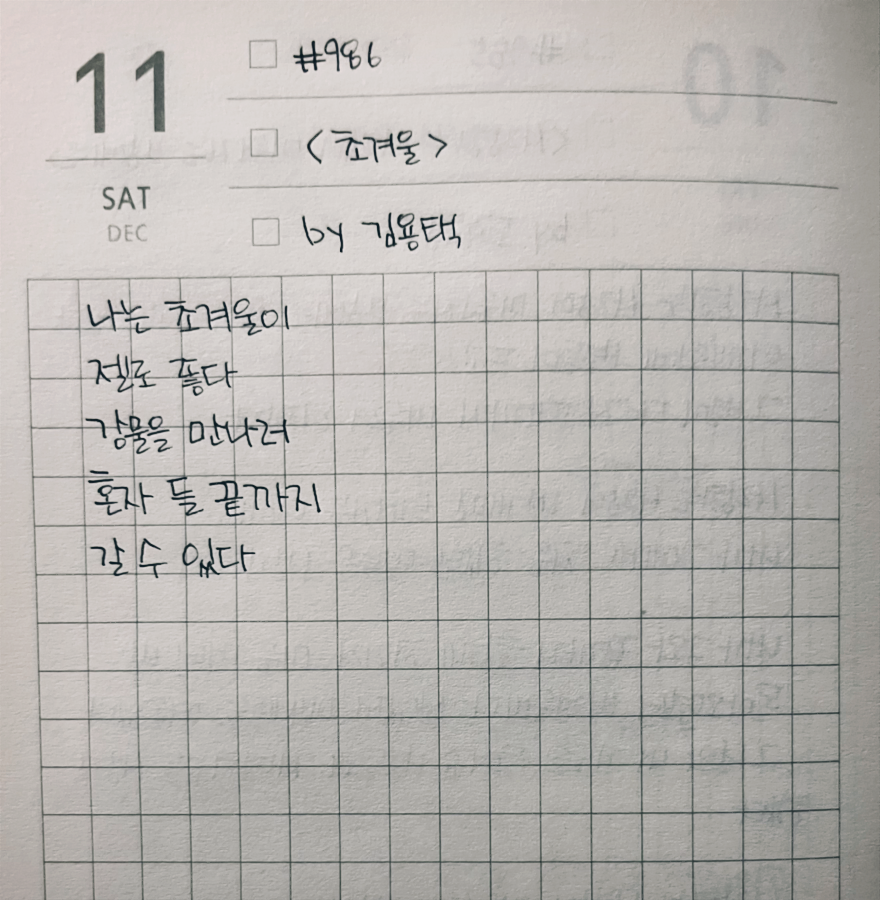 11
SAT
DEC
#986
<초겨울>
by 김용택
나는 초겨울이
젤로 좋다
강물을 만나러
혼자 들 끝까지
갈 수 있다